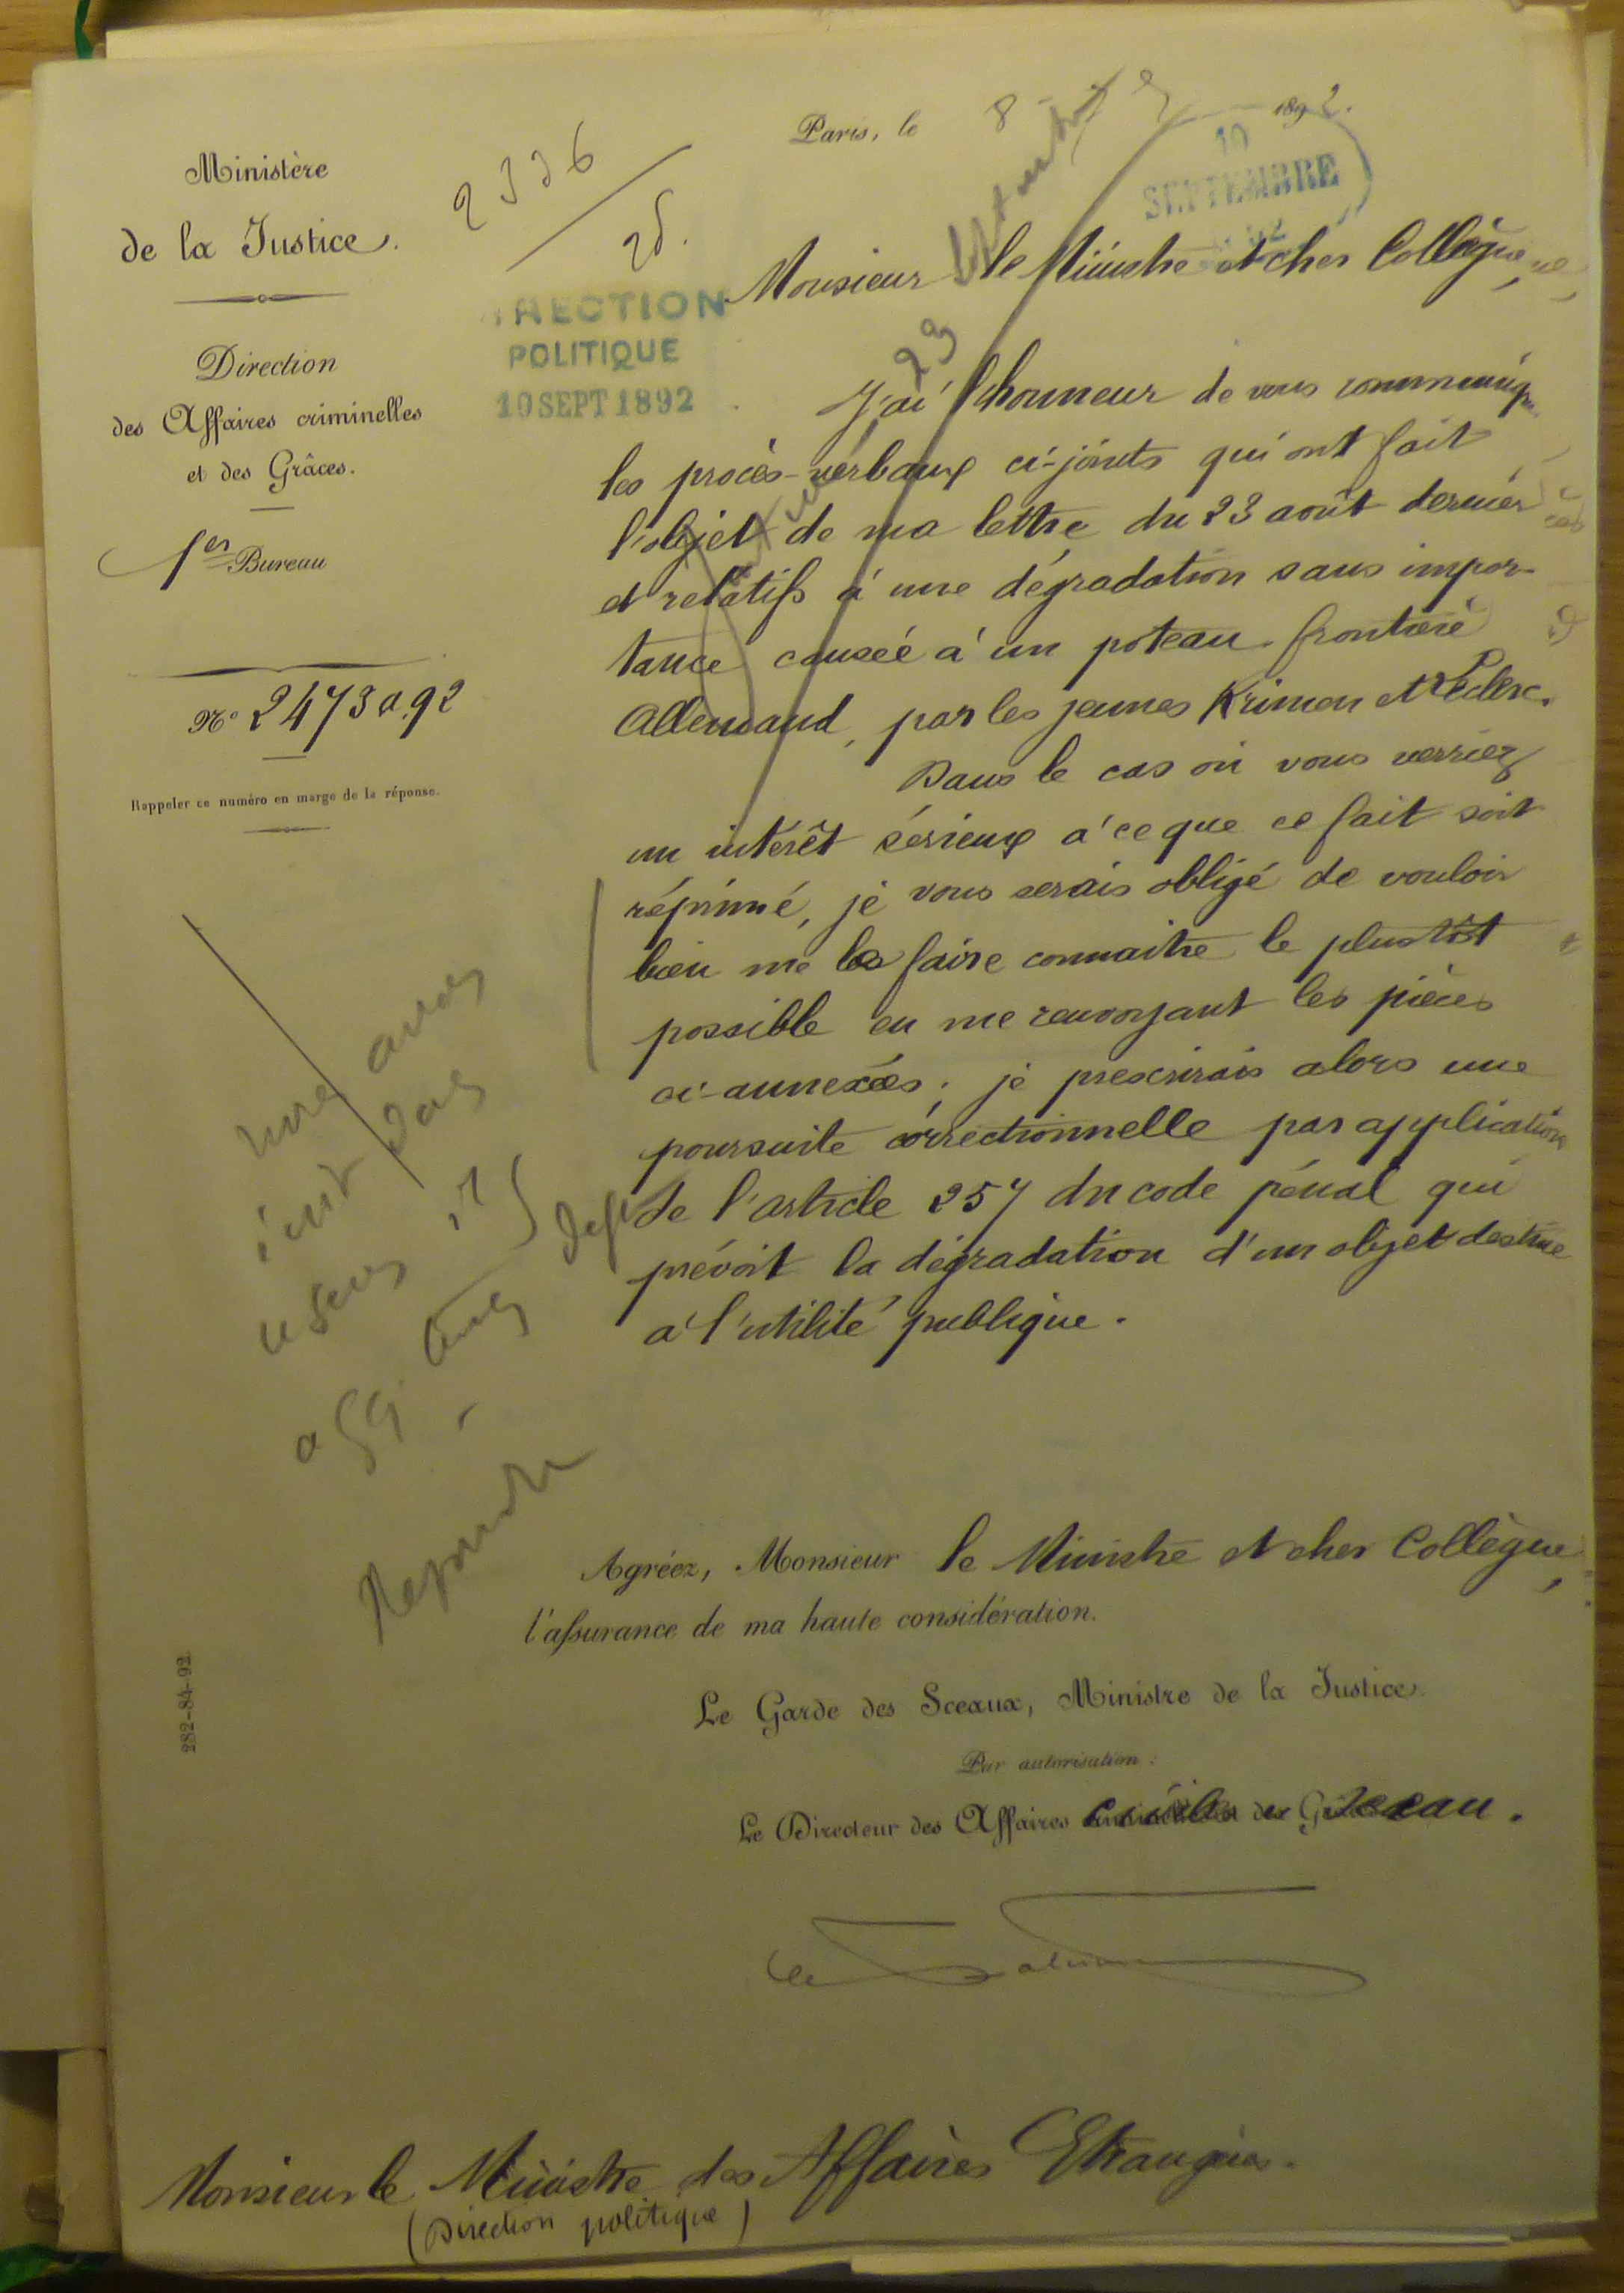 Ministère
de la Justice.
Direction
des Affaires criminelles
et des Grâces.
1er Bureau
No 2473 a. 92
Rappeler ce numéro en marge de la réponse.
2336
25.
DIRECTION
POLITIQUE
10 SEPT 1892
Paris, le 8 1892.
10
SEPTEMBRE
92
Monsieur le Ministre et cher Collègue,
23
J'ai l'honneur de vous communiquer
les procès-verbaux ci-joints qui ont fait
l'objet de ma lettre du 23 août dernier
et relatifs à une dégradation sans impor-
tance causée à un poteau frontière
Allemand, par les jeunes Krimen et Leclerc.
Dans le cas où vous verriez
un intérêt sérieux à ce que ce fait soit
réprimé, je vous serais obligé de vouloir
bien me le faire connaitre le plus tôt
possible en me renvoyant les pièces
ci-annexées ; je prescrirais alors une
poursuite correctionnelle par application
de l'article 257 du code pénal qui
prévoit la dégradation d'un objet destiné
à l'utilité publique.
nous avons
écrit dans
ce sens
Répondre
Agréez, Monsieur le Ministre et cher Collègue,
l'assurance de ma haute considération.
Le Garde des Sceaux, Ministre de la Justice.
Par autorisation :
Le Directeur des Affaires civiles et du Sceau.
282-84-92
Monsieur le Ministre des Affaires Etrangères.
(Direction politique)